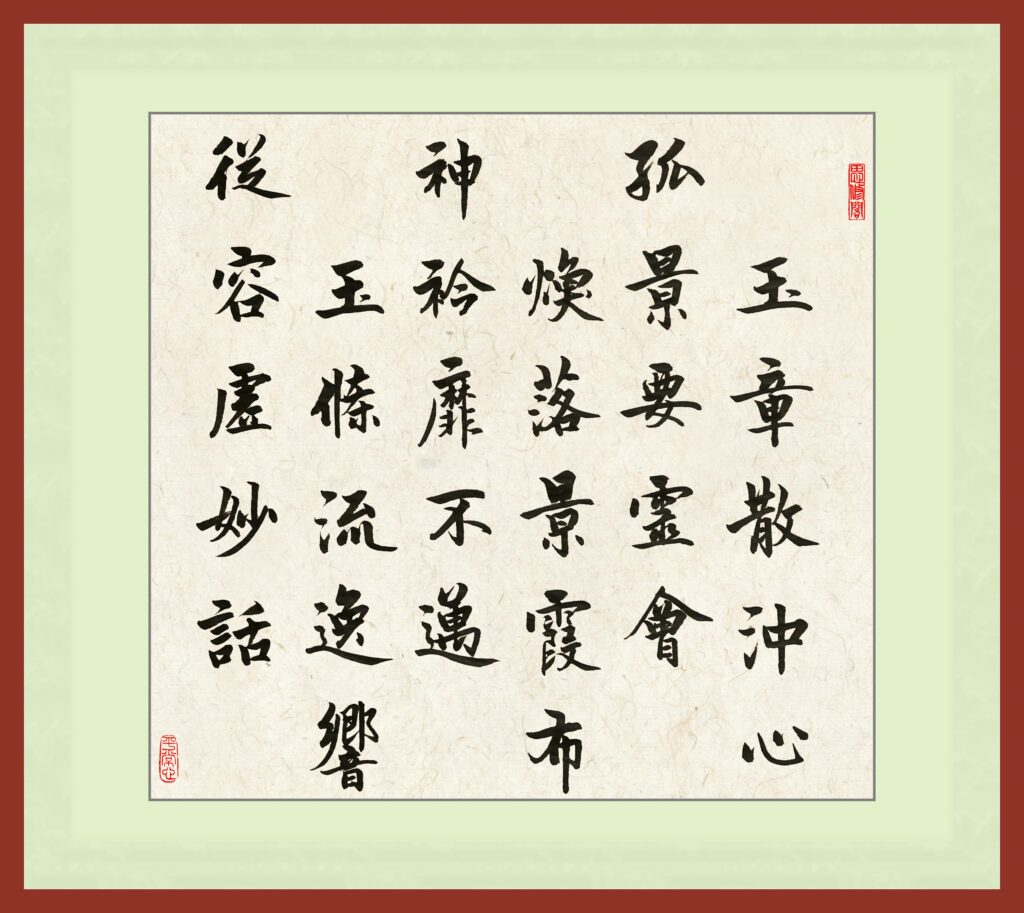 思修閣
玉章散沖心
孤景要靈會
煥落景霞布
神衿靡不邁
玉條流逸響
從容虛妙話
平常心